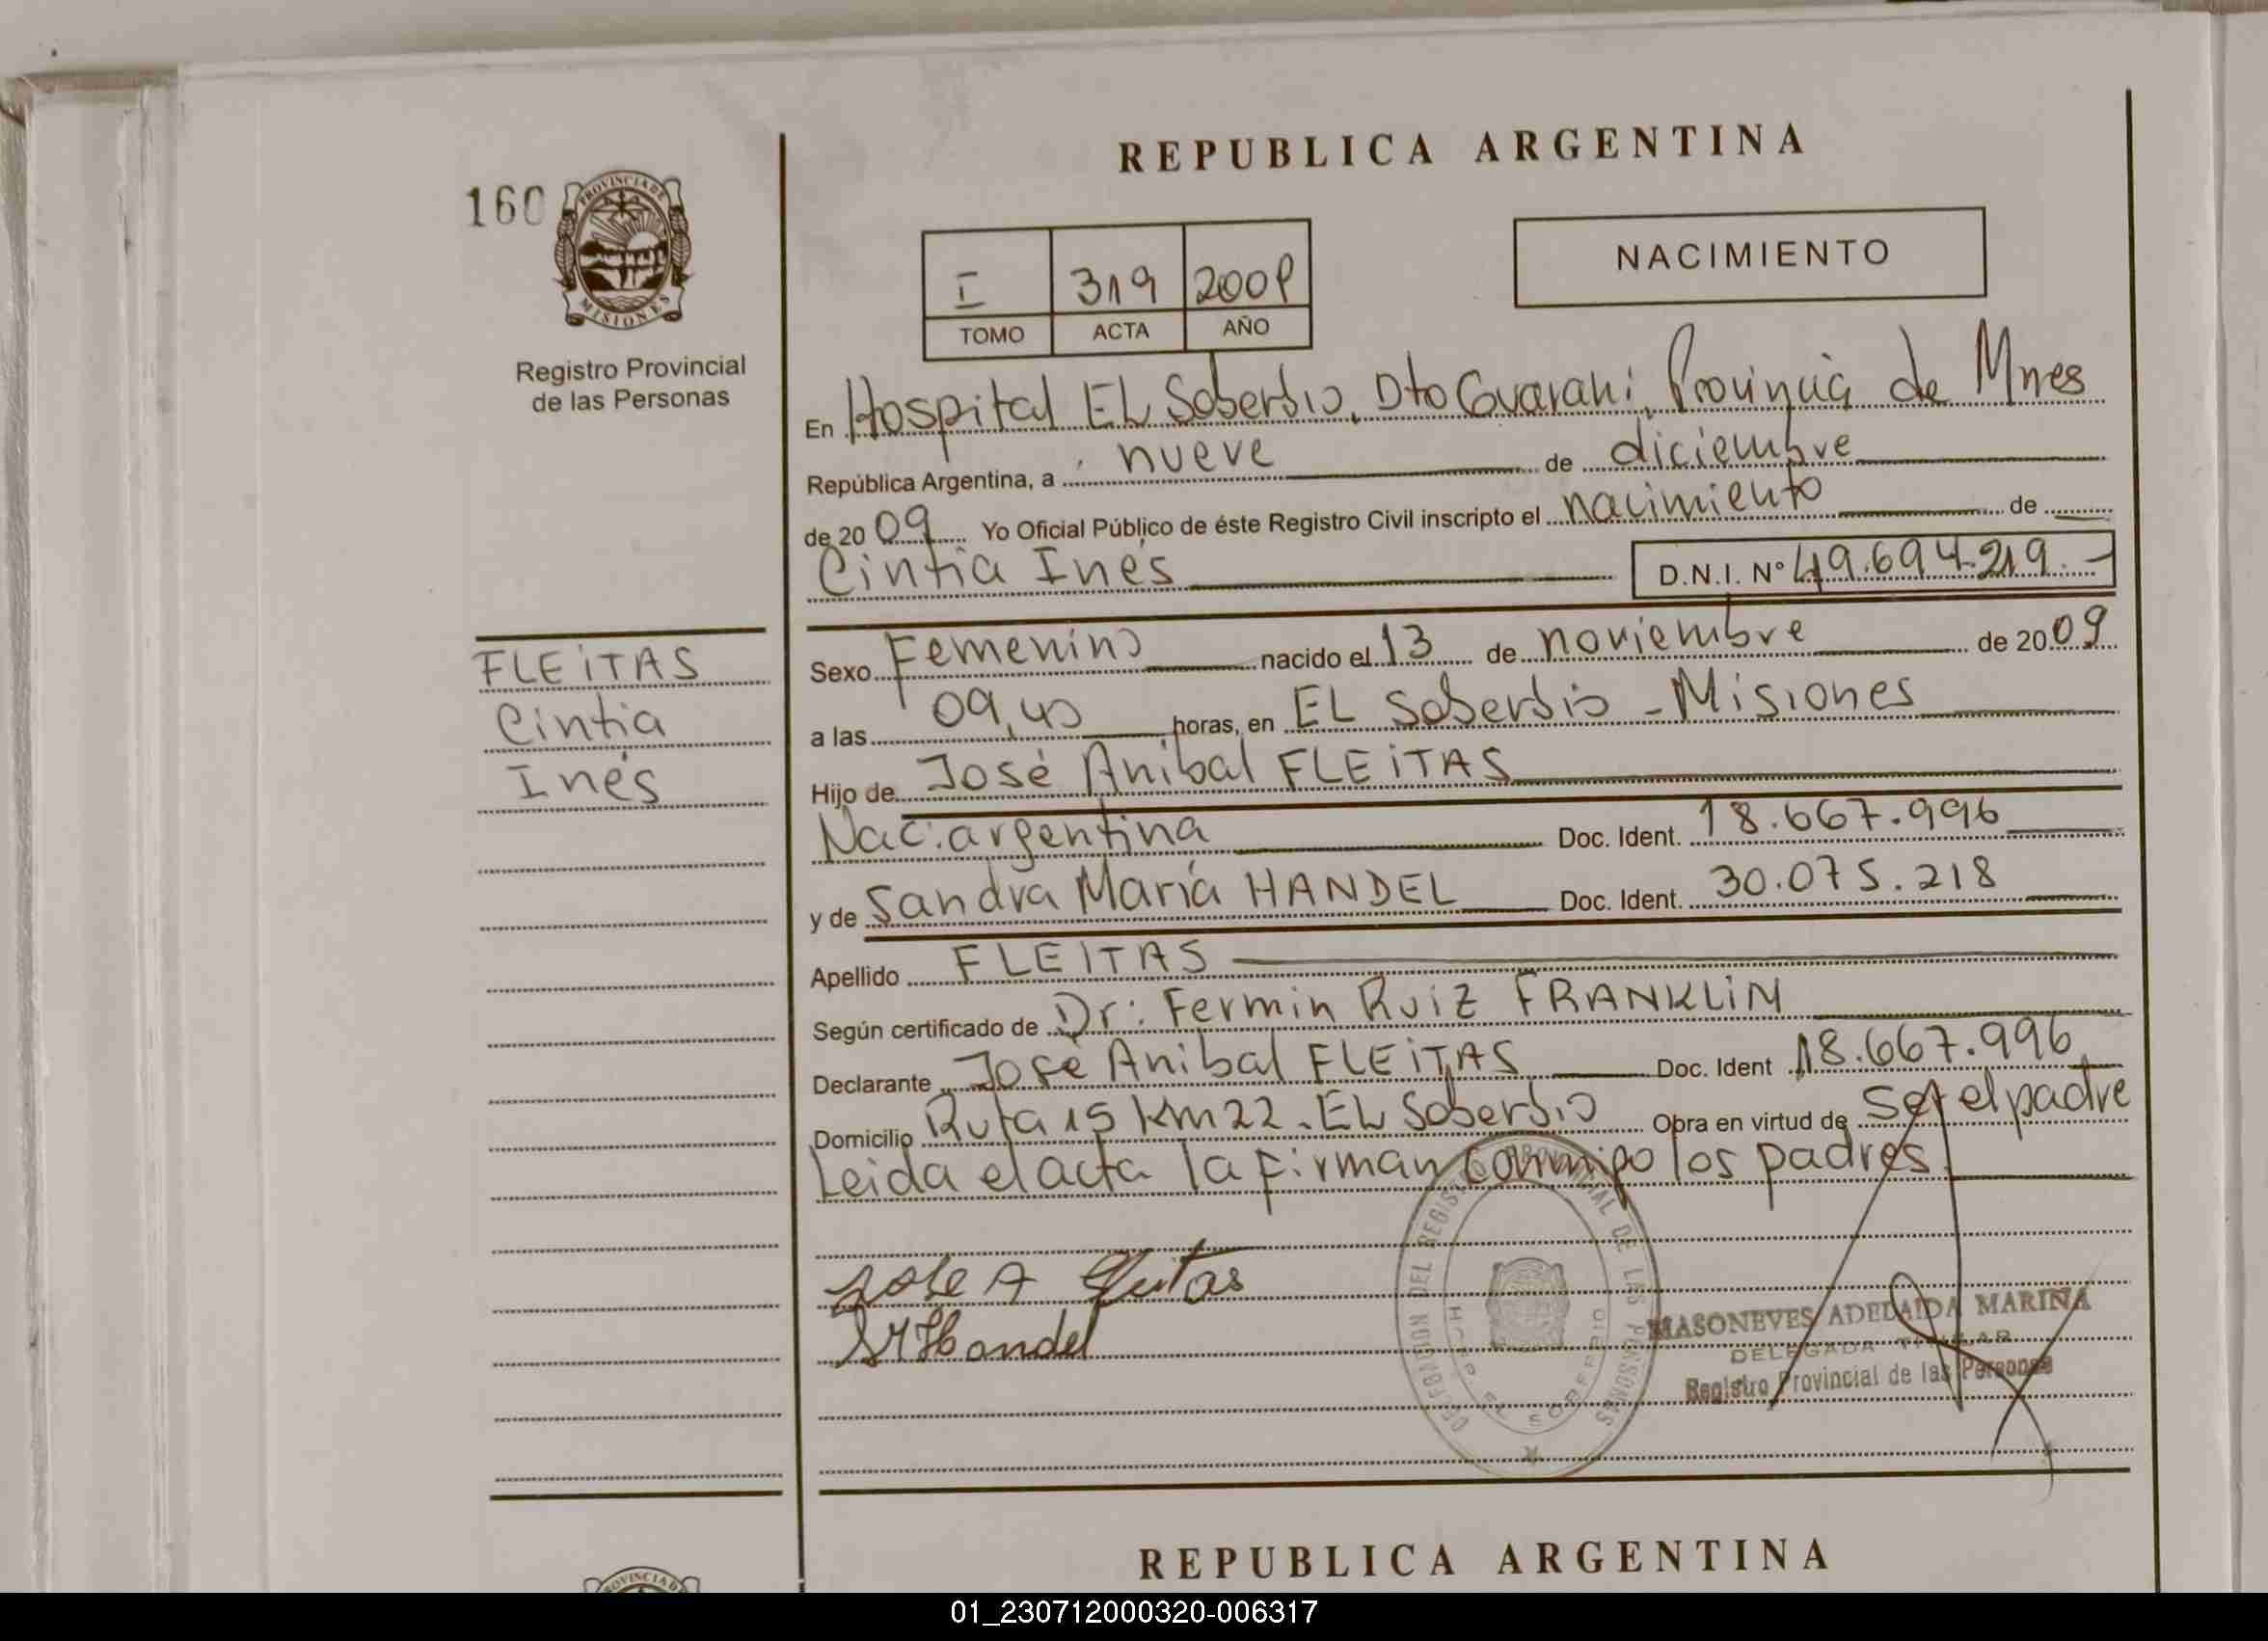 REPUBLICA ARGENTINA
160
PROVINCIA DE
MISIONES
Registro Provincial
de las Personas
I 319 2009
TOMO ACTA AÑO
NACIMIENTO
En Hospital EL Soberbio, Dto Guarani, Provincia de Mnes
República Argentina, a nueve de diciembre
de 2009 Yo Oficial Público de éste Registro Civil inscripto el nacimiento de
Cintia Inés D.N.I. Nº 49.694.219.-
FLEITAS
Cintia
Inés
Sexo Femenino nacido el 13 de noviembre de 2009
a las 09,40 horas, en EL Soberbio - Misiones
Hijo de José Anibal FLEITAS
Nac: argentina Doc. Ident. 18.667.996
y de Sandra María HANDEL Doc. Ident. 30.075.218
Apellido FLEITAS
Según certificado de Dr: Fermin Ruiz FRANKLIN
Declarante José Anibal FLEITAS Doc. Ident 18.667.996
Domicilio Ruta 15 Km 22. EL Soberbio Obra en virtud de ser el padre
Leida el acta la firman conmigo los padres.
Jose A Fleitas
SMHandel
DEL REGISTRO PROVINCIAL DE LAS PERSONAS
EL SOBERBIO
MASONEVES ADELAIDA MARINA
DELEGADA TITULAR
Registro Provincial de las Personas
REPUBLICA ARGENTINA
PROVINCIA DE
01_230712000320-006317